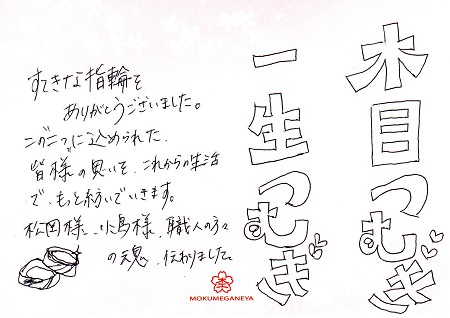 木目つむぎ
一生つむぎ
すてきな指輪を
ありがとうございました。
この二つに込められた、
皆様の思いを、これからの生活
で、もっと紡いでいきます。
松岡様、小鳥様、職人の方々
の魂、伝わりました。
MOKUMEGANEYA